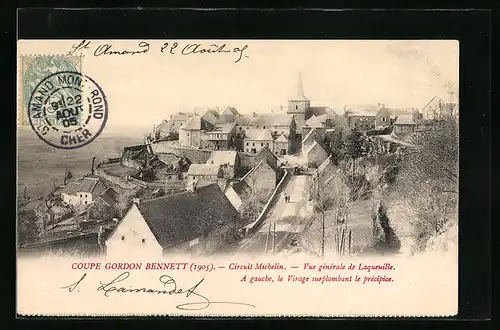 St Amand 22 Août 05
ST AMAND MONT-ROND
22
AOUT
05
CHER
COUPE GORDON BENNETT (1905). - Circuit Michelin. - Vue générale de Laqueuille.
A gauche, le Virage surplombant le précipice.